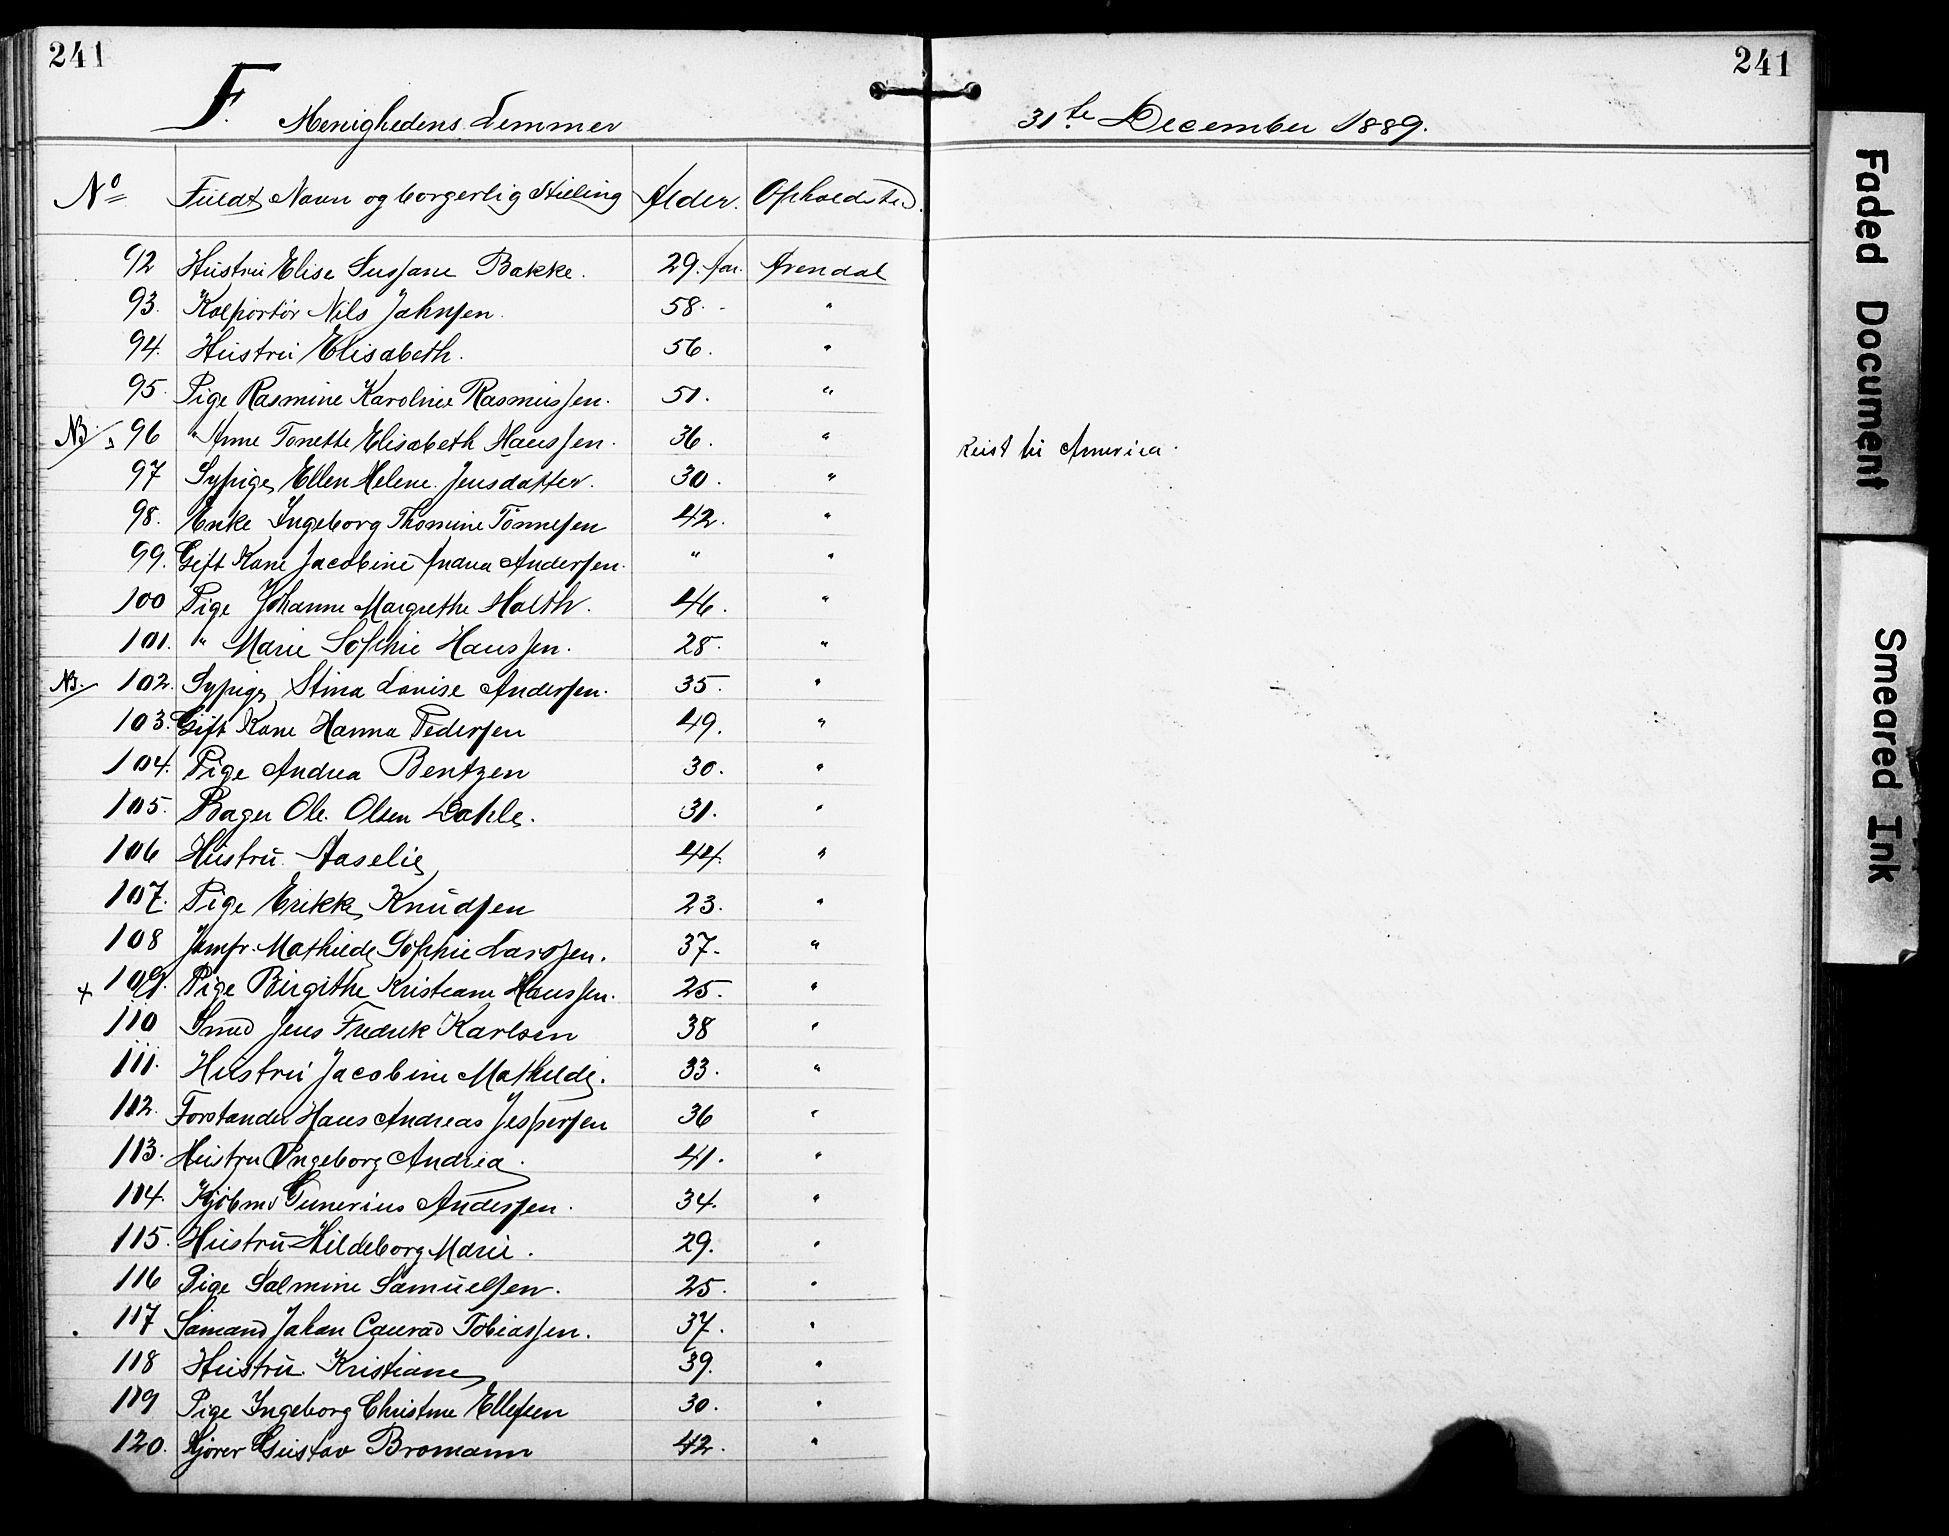 241 241
F. Menighedens Lemmer 31te December 1889.
No Fuldt Navn og borgerlig Stilling Alder. Opholdsted.
92 Hustru Elise Susjane Bakke. 29. Aar. Arendal
93. Kolportör Nils Jahnsen. 58. - "
94. Hustru Elisabeth. 56. "
95. Pige Rasmine Karoline Rasmussen. 51. "
NB. 96 " Anne Tonette Elisabeth Hanssen. 36. " reist til America.
97 Sypige Ellen Helene Jensdatter. 30. "
98. Enke Ingeborg Thomine Tönnesen 42. "
99. Gift Kone Jacobine Andrea Andersen. " "
100 Pige Johanne Margrethe Holth. 46. "
101. " Marie Sophie Hanssen. 28. "
NB. 102. Sypige Stina Lovise Andersen. 35. "
103. Gift Kone Hanna Pedersen 49. "
104. Pige Andrea Bentzen 30. "
105. Bager Ole Olsen Dahle. 31. "
106 Hustru Aaselie 44. "
107. Pige Erikke Knudsen 23. "
108 Jomfr. Mathilde Sophie Larssen. 37. "
+ 109. Pige Birgithe Kristiane Hanssen. 25. "
110 Smed Jens Fredrik Karlsen 38 "
111. Hustru Jacobine Mathilde. 33. "
112. Forstander Hans Andreas Jespersen 36 "
113. Hustru Ingeborg Andrea. 41. "
114. Kjöbmd Gunerius Andersen. 34. "
115. Hustru Hildeborg Marie. 29. "
116 Pige Salmine Samuelsen. 25. "
117 Sömand Johan Conrad Tobiassen. 37. "
118 Hustru Kristiane 39. "
119 Pige Ingeborg Christine Ellefsen 30. "
120. Kjörer Gustav Bromann 42. "
Faded Document
Smeared Ink